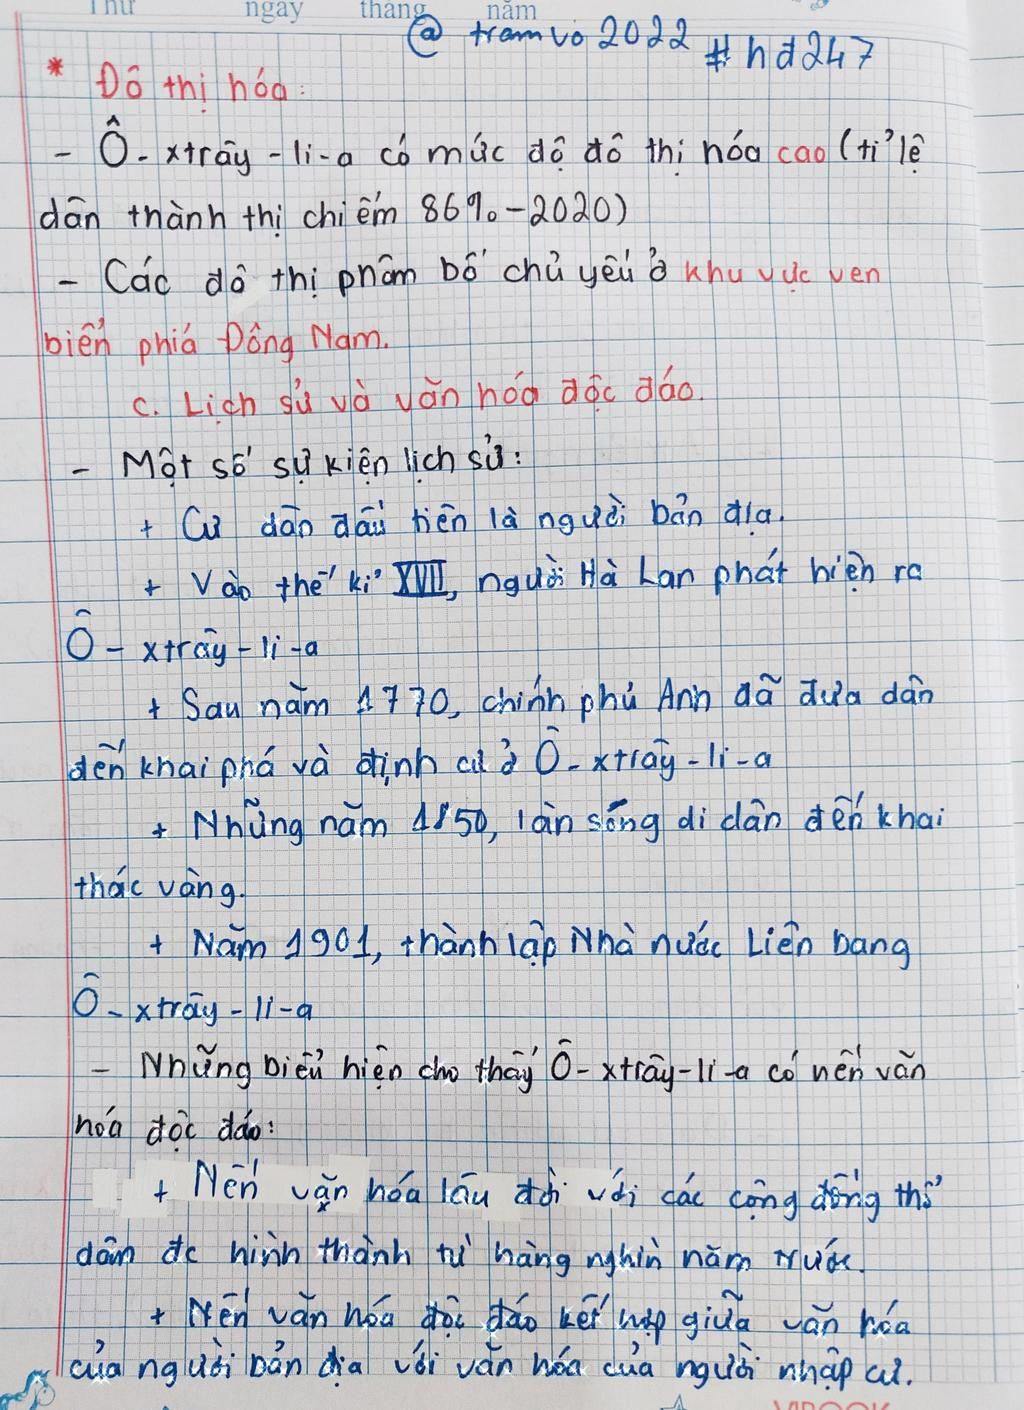 Thứ ngày tháng năm
@ tramvo 2022 #hđ247
* Đô thị hóa:
- Ô-xtrây-li-a có mức độ đô thị hóa cao (tỉ lệ
dân thành thị chiếm 86%-2020)
- Các đô thị phân bố chủ yếu ở khu vực ven
biển phía Đông Nam.
c. Lịch sử và văn hóa độc đáo.
- Một số sự kiện lịch sử:
+ Cư dân đầu tiên là người bản địa.
+ Vào thế kỉ XVII, người Hà Lan phát hiện ra
Ô-xtrây-li-a
+ Sau năm 1770, chính phủ Anh đã đưa dân
đến khai phá và định cư ở Ô-xtrây-li-a
+ Những năm 1850, làn sóng di dân đến khai
thác vàng.
+ Năm 1901, thành lập Nhà nước Liên bang
Ô-xtrây-li-a
- Những biểu hiện cho thấy Ô-xtrây-li-a có nền văn
hóa độc đáo:
+ Nền văn hóa lâu đời với các cộng đồng thổ
dân đc hình thành từ hàng nghìn năm trước.
+ Nền văn hóa độc đáo kết hợp giữa văn hóa
của người bản địa với văn hóa của người nhập cư.